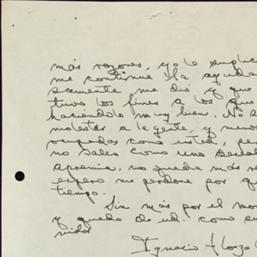 más razones, yo le suplic
me continue la ayuda
samente me dió, y que
tuvo los fines a los que
haciéndolo muy bien. No
molestar a la gente, y menos
ocupadas como usted, pe
no sabes como uno
apremia, no queda más re
espero me perdone por qu
tiempo.
Sin más por el mo
y quedo de ud. como su
vidor
Ignacio